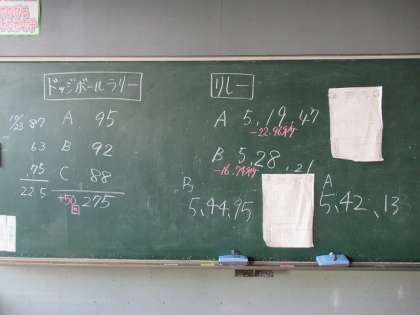 ドッジボールラリー
12/23 87 A 95
63 B 92
75 C 88
225 275
+50
リレー
A 5,19,47
-22.96秒
B 5,28,21
-16.74秒
B
5,44,95
A
5,42,13